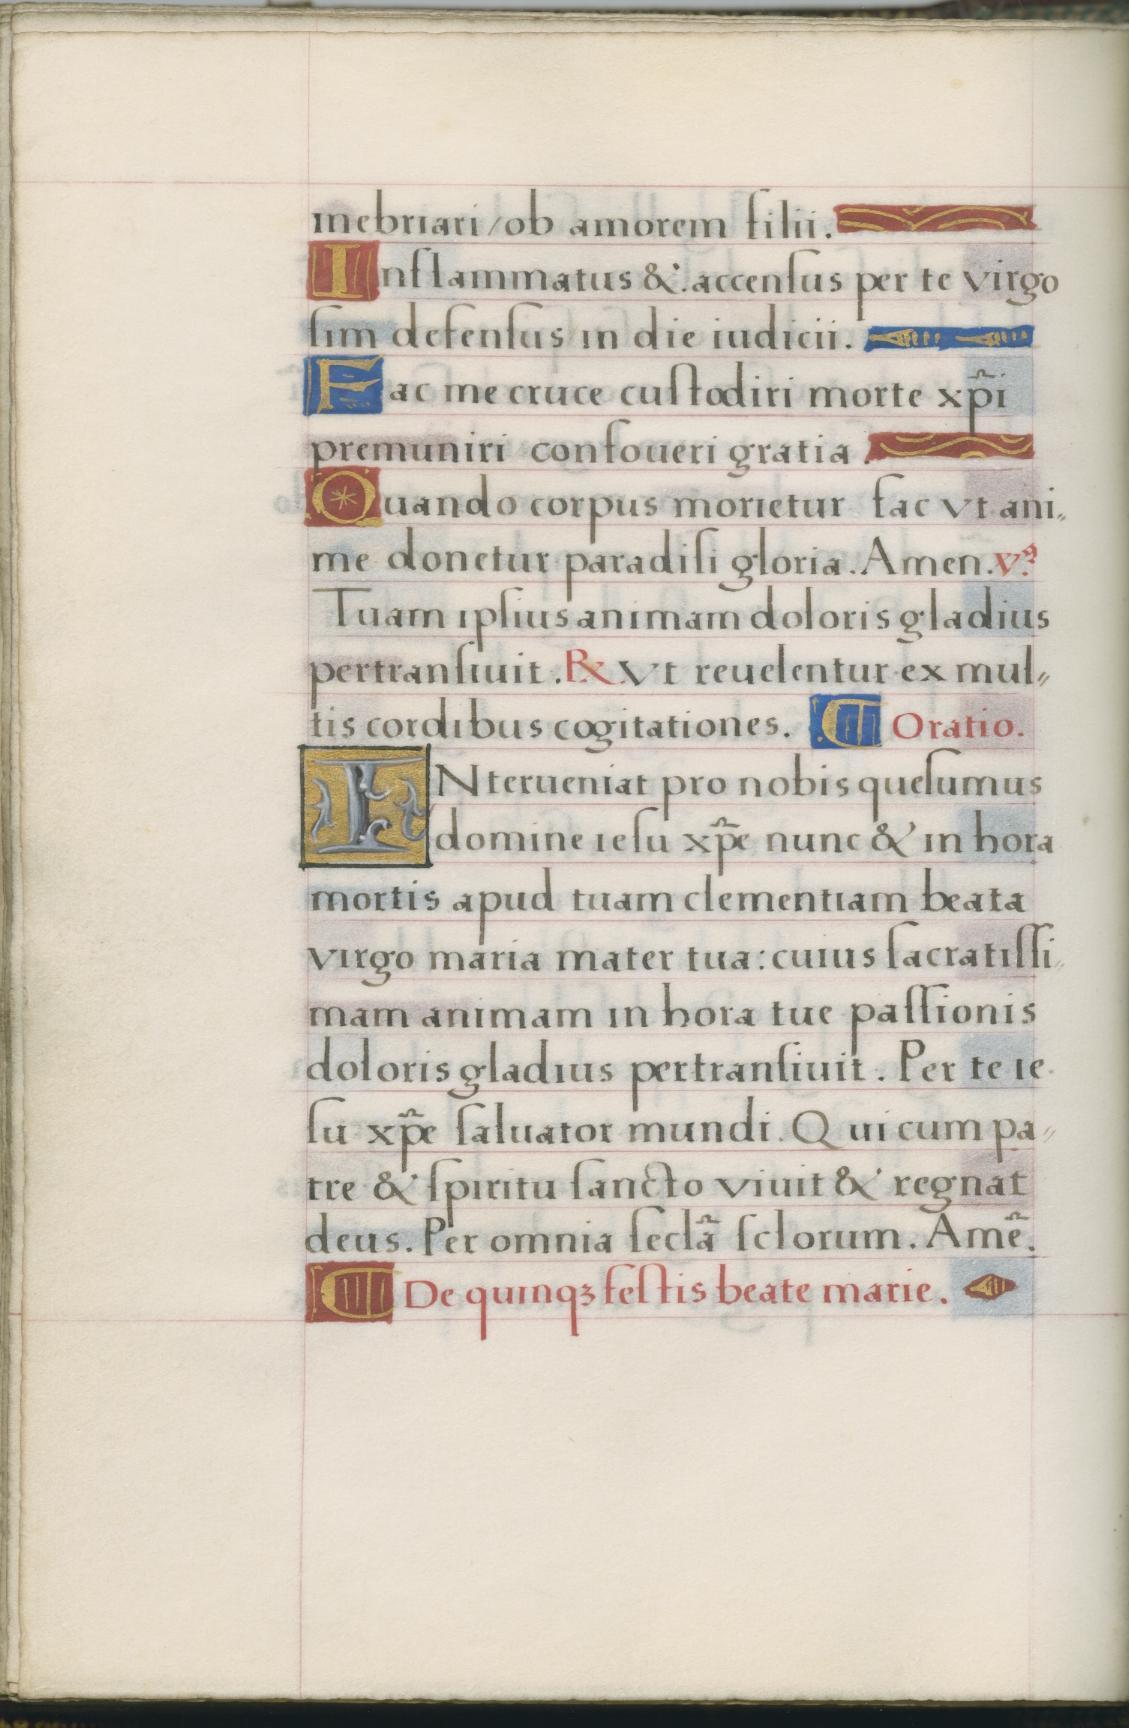 inebriari/ob amorem filii.
Inflammatus &.accensus per te virgo
sim defensus in die iudicii.
Fac me cruce custodiri morte xp̃i
premuniri confoueri gratia.
Quando corpus morietur fac vt ani„
me donetur paradisi gloria.Amen.v̉.
Tuam ipsius animam doloris gladius
pertransiuit.℞ Vt reuelentur ex mul„
tis cordibus cogitationes. ¶ Oratio.
INterueniat pro nobis quesumus
domine iesu xp̃e nunc & in hora
mortis apud tuam clementiam beata
virgo maria mater tua:cuius sacratissi„
mam animam in hora tue passionis
doloris gladius pertransiuit. Per te ie„
su xp̃e saluator mundi. Qui cum pa„
tre & spiritu sancto viuit & regnat
deus. Per omnia seclã sclorum. Amẽ.
¶ De quinqꝫ festis beate marie.